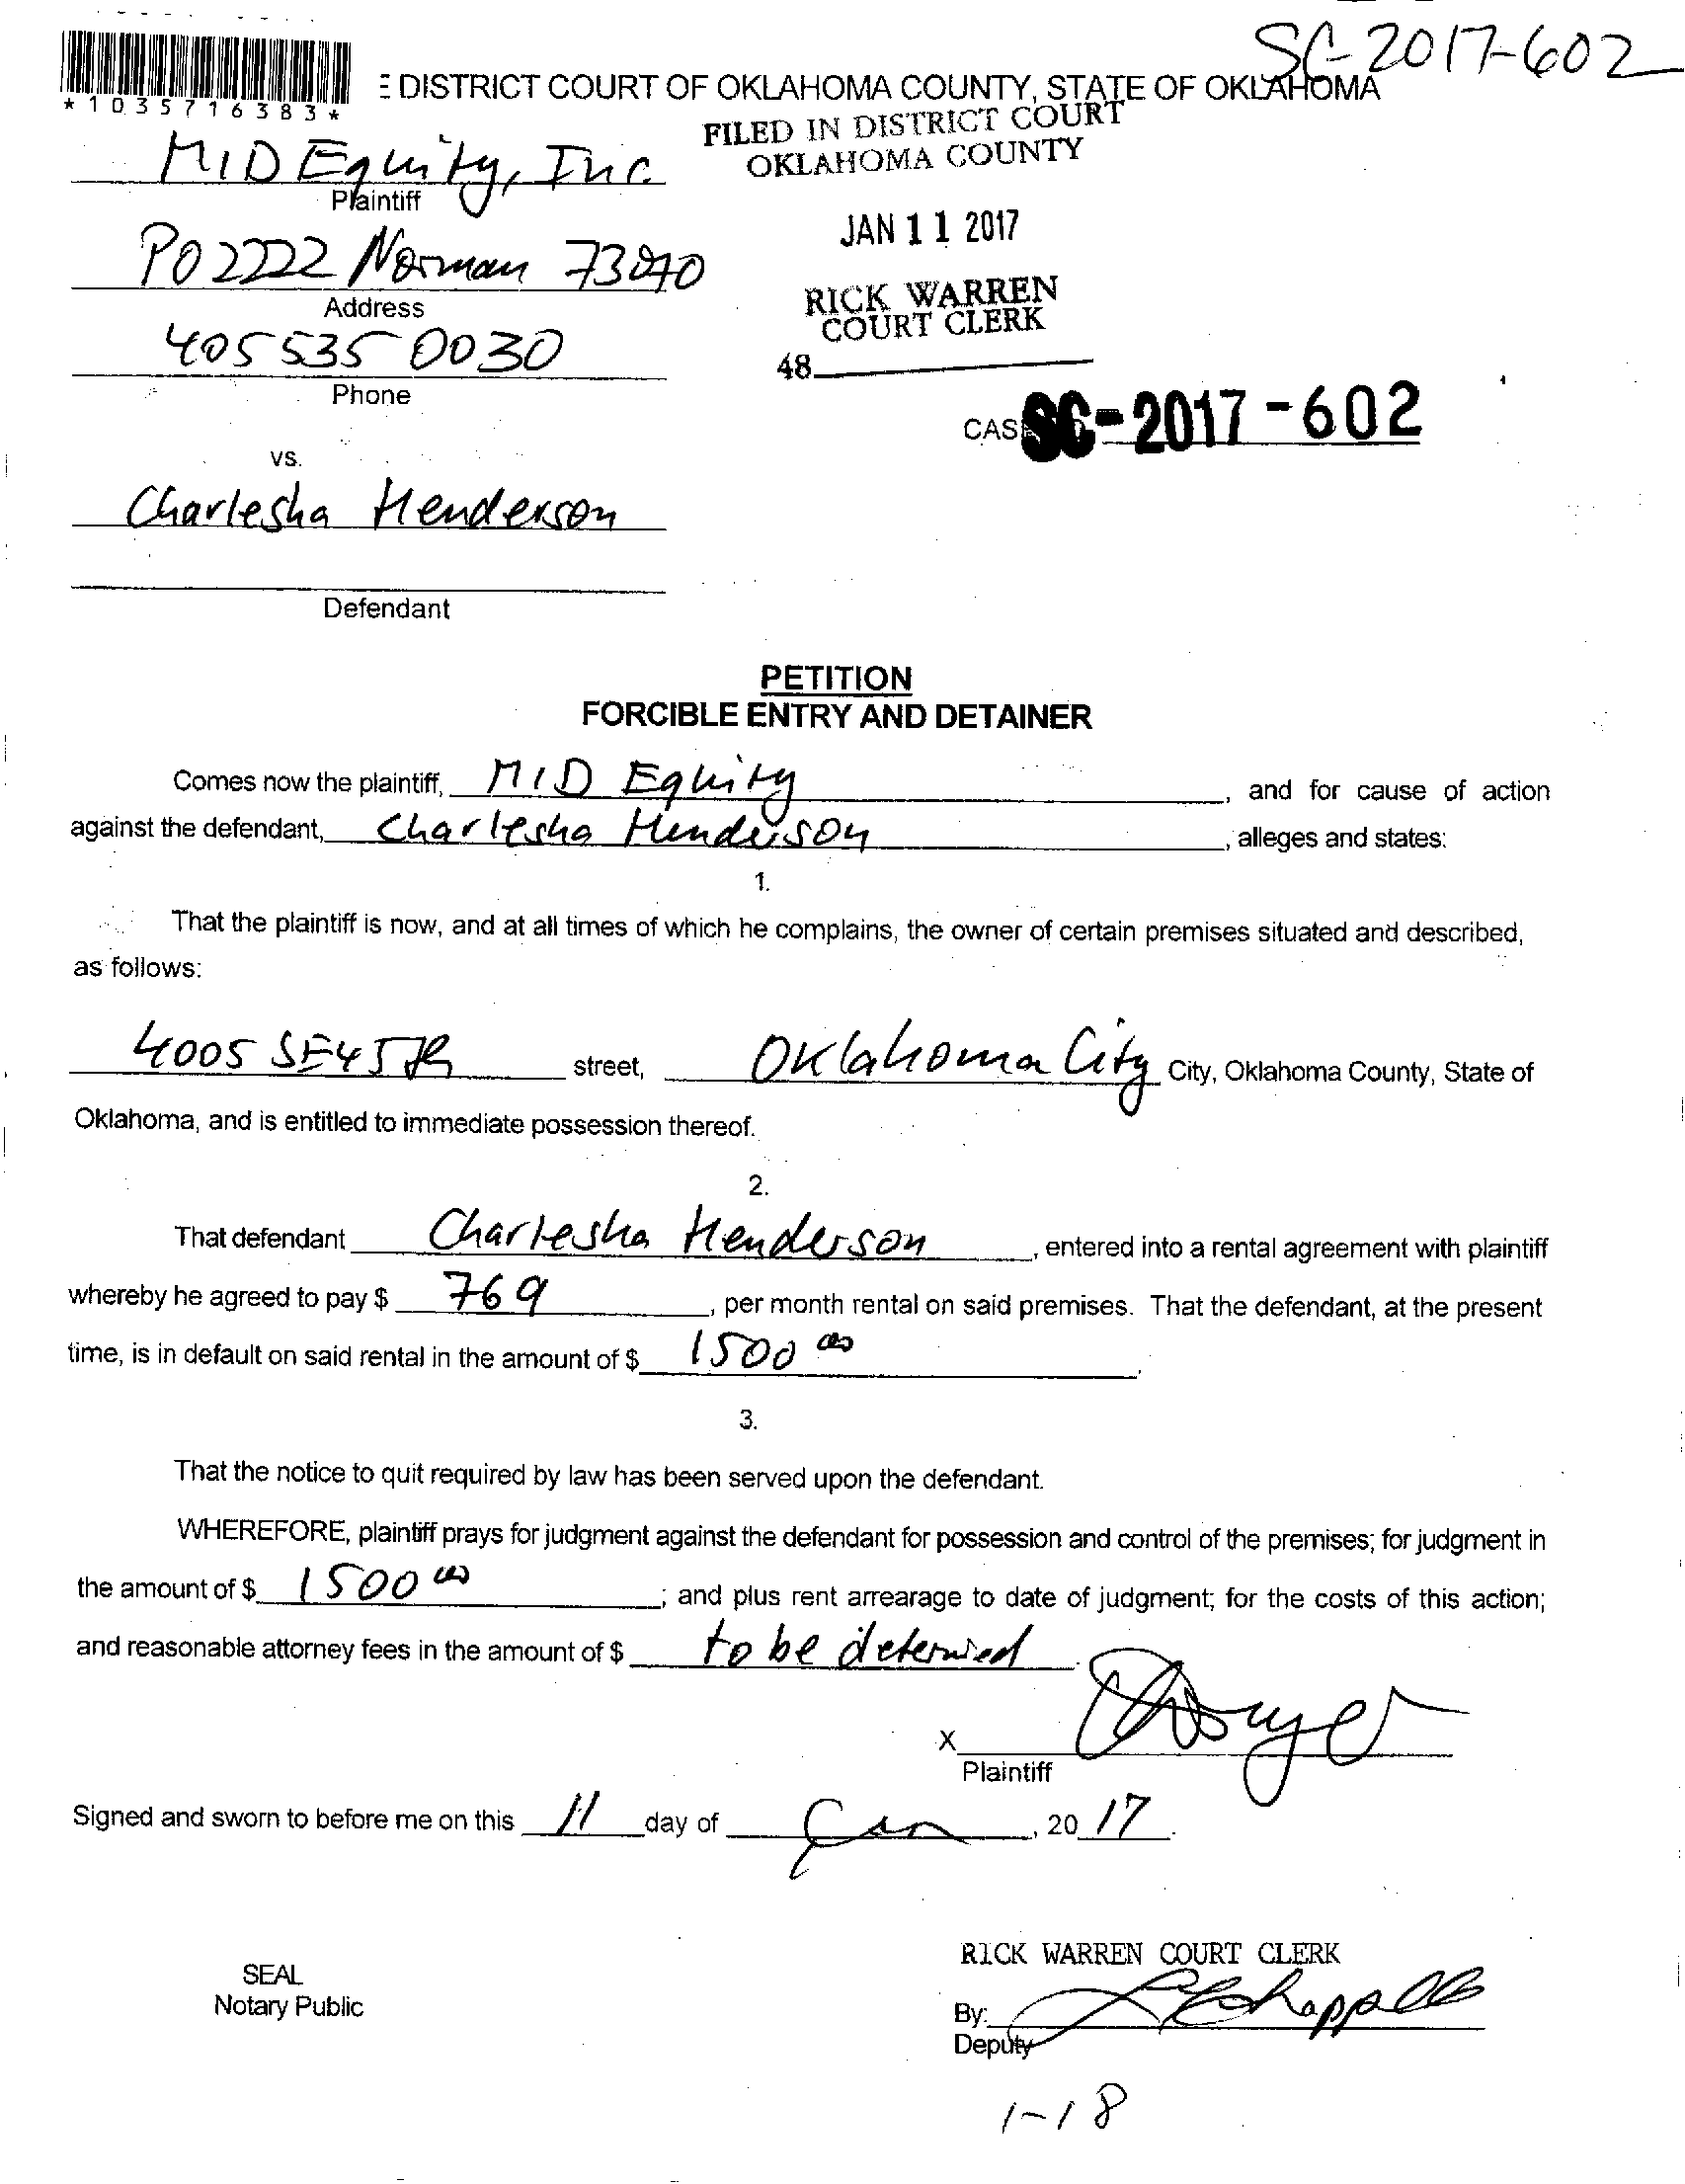 SC-2017-602
*1035716383*
E DISTRICT COURT OF OKLAHOMA COUNTY, STATE OF OKLAHOMA
FILED IN DISTRICT COURT
OKLAHOMA COUNTY
MID Equity, Inc.
Plaintiff
JAN 11 2017
PO 2222 Norman 73070
Address
RICK WARREN
COURT CLERK
405 535 0030
Phone
48
CASE SC-2017-602
vs.
Charlesha Henderson
Defendant
PETITION
FORCIBLE ENTRY AND DETAINER
Comes now the plaintiff, MID Equity, and for cause of action
against the defendant, Charlesha Henderson, alleges and states:
1.
That the plaintiff is now, and at all times of which he complains, the owner of certain premises situated and described,
as follows:
4005 SE 45th street, Oklahoma City City, Oklahoma County, State of
Oklahoma, and is entitled to immediate possession thereof.
2.
That defendant Charlesha Henderson, entered into a rental agreement with plaintiff
whereby he agreed to pay $ 769, per month rental on said premises. That the defendant, at the present
time, is in default on said rental in the amount of $ 1500 00.
3.
That the notice to quit required by law has been served upon the defendant.
WHEREFORE, plaintiff prays for judgment against the defendant for possession and control of the premises; for judgment in
the amount of $ 1500 00; and plus rent arrearage to date of judgment; for the costs of this action;
and reasonable attorney fees in the amount of $ to be determied.
X
Plaintiff
Signed and sworn to before me on this 11 day of Jan, 20 17.
RICK WARREN COURT CLERK
SEAL
Notary Public
By:
Deputy
1-18